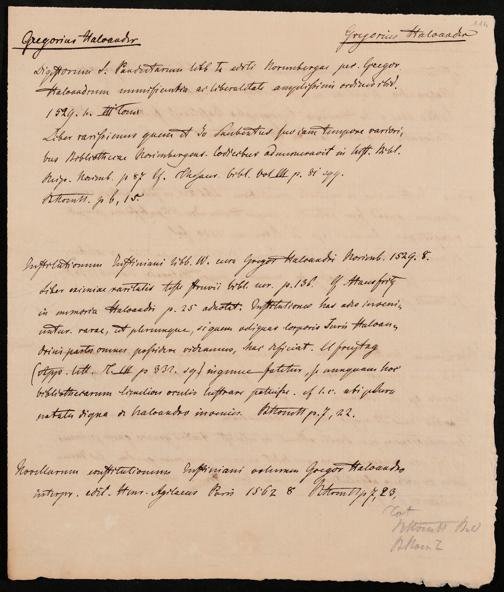 Gregorius Haloander Gregorius Haloander
Digestorum s. Pandectarum libb L editi Norembergae per Gregor
Haloandrum munificentia ac liberalitate amplissimi ordinis ibid.
1529. 4. III Tomi
Liber rarissimus quem et Jo Saubertus suo iam tempore rariori,
bus Bibliothecae Norimbergens. codicibus adnumeravit in hist. Bibl.
Norimb. p 87 cf. Thesaur. bibl. vol III p. 81 sqq.
p. 6, 15
Institutionum Justiniani libb. IV. cura Gregor Haloandri Norimb. 1529. 8.
Liber eximiae raritatis teste Struvii bibl. p. 136. cf
in memoria Haloandri p. 25 adnotat. Institutiones has adeo inveni,
untur rarae, ut plerumque, si quem reliquas corporis Juris Haloan,
drini partes omnes possidere videamus, hae deficiant. Et Freytag
(App. litt. T. III p 832. sq) ingenue fatetur, se nunquam hoc
bibliothecarum oculis lustrare potuisse. cf. l. c. ubi plura
notatu digna de Haloandro invenies. p. 7, 22.
Novellarum constitutionum Justiniani volumen Gregor Haloandro
interpr. edit. Henr. Agilaeus Paris 1562 8 p 7, 23,